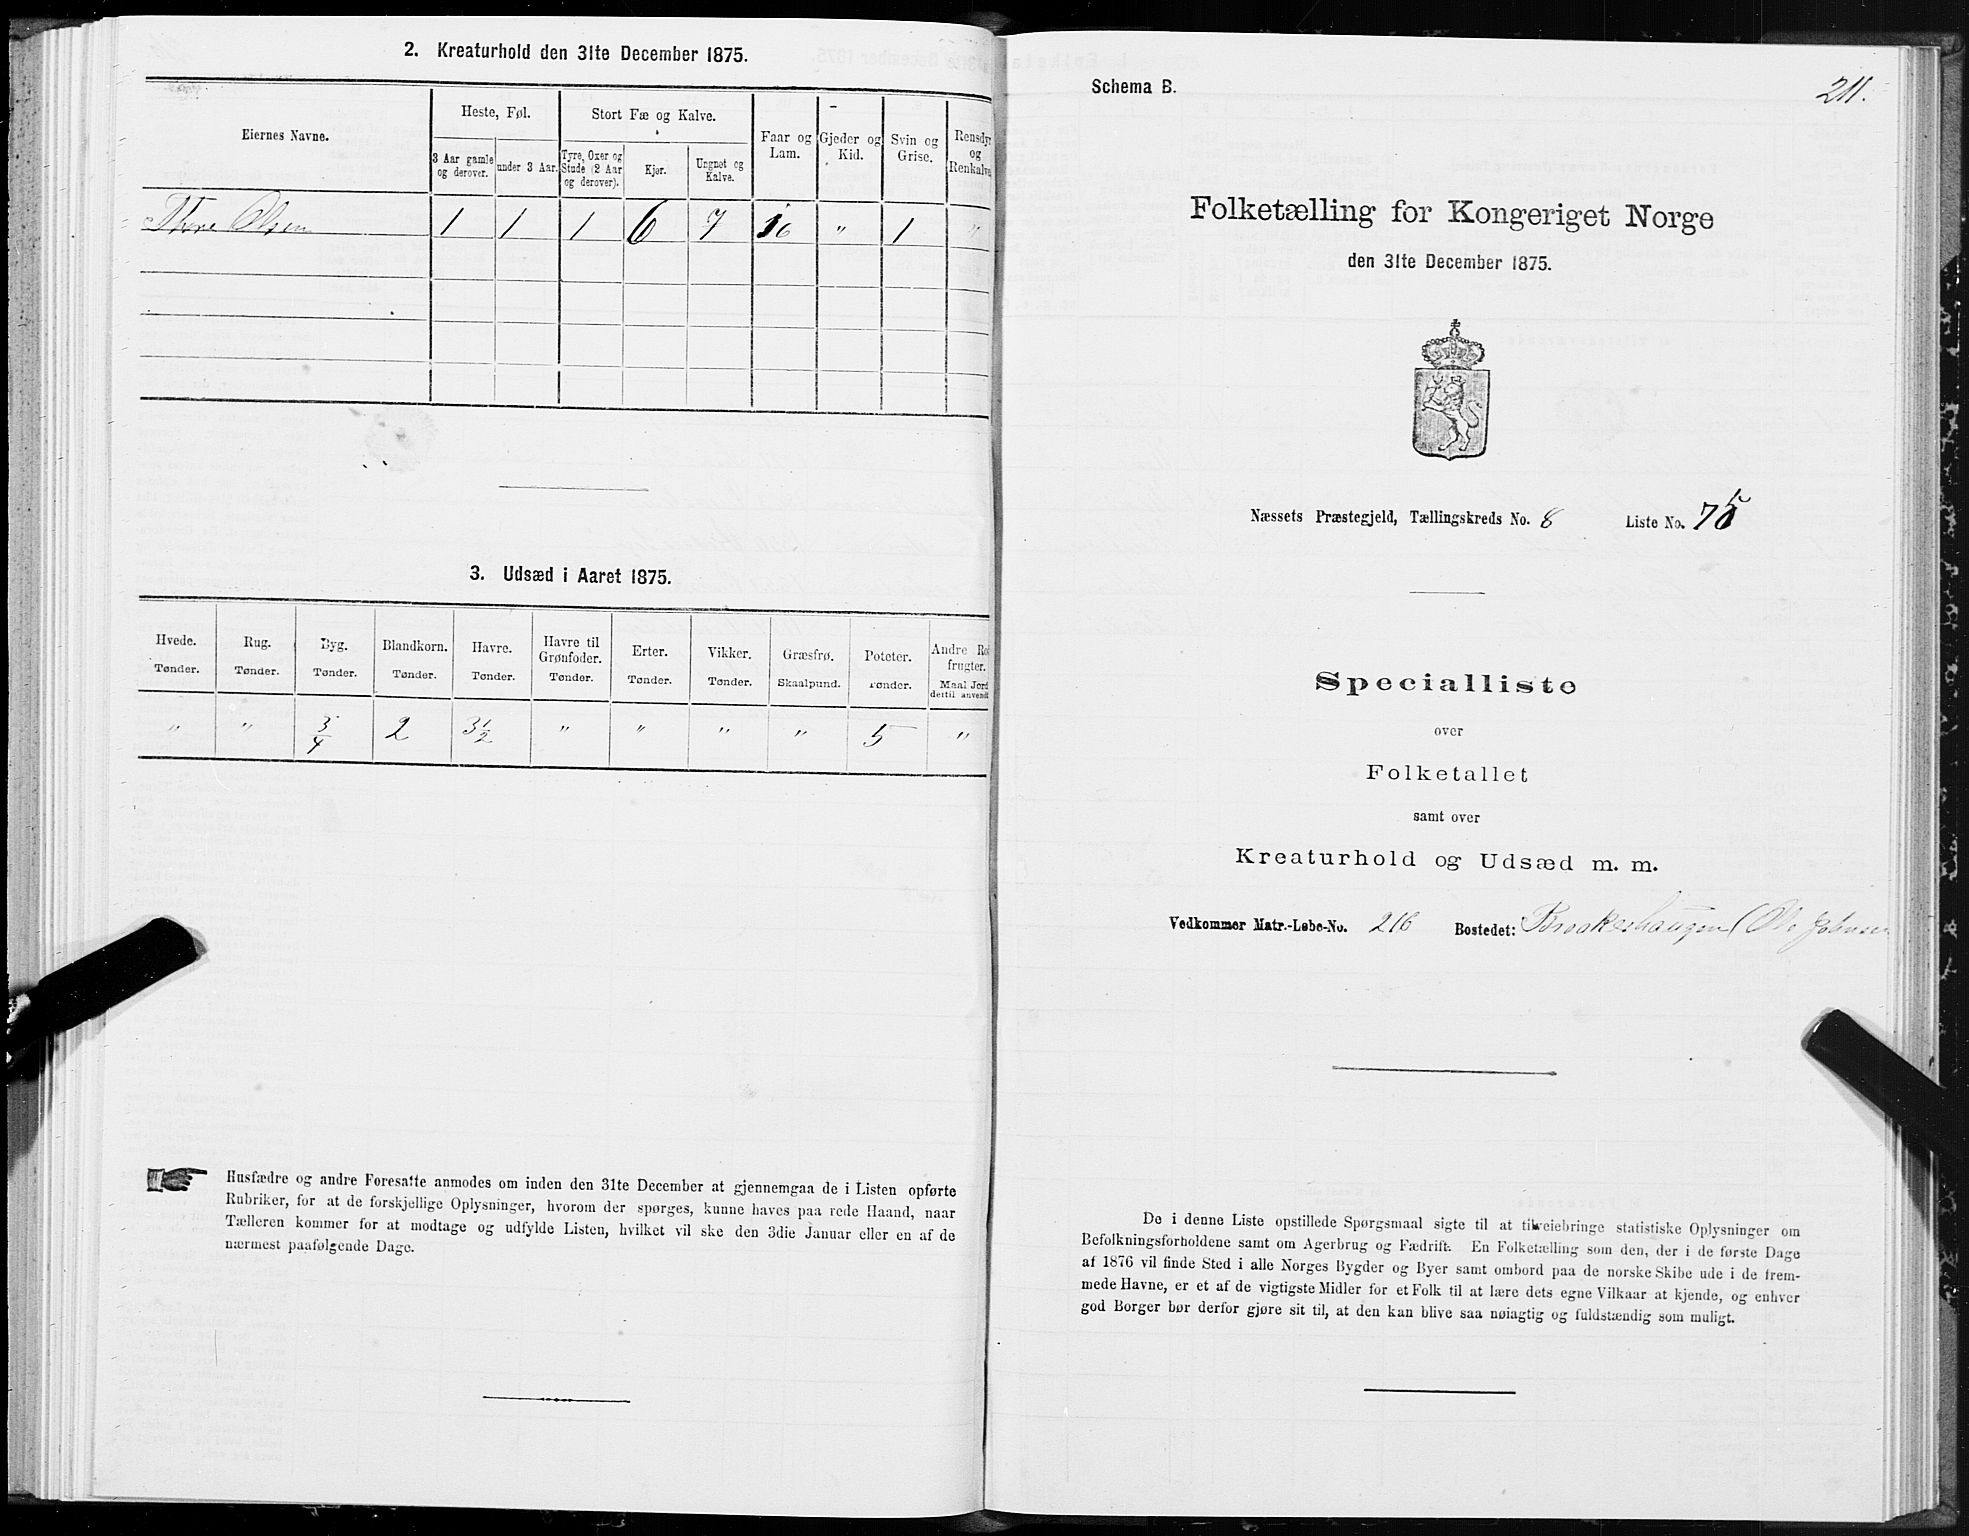 2. Kreaturhold den 31te December 1875.
Eiernes Navne.
Heste, Føl.
3 Aar gamle og derover.
under 3 Aar.
Stort Fæ og Kalve.
Tyre, Oxer og Stude (2 Aar og derover).
Kjør.
Ungnøt og Kalve.
Faar og Lam.
Gjeder og Kid.
Svin og Grise.
Rensdyr og Renkalve
Thore Olsen 1 1 1 6 7 16 " 1 "
3. Udsæd i Aaret 1875.
Hvede. Tønder.
Rug. Tønder.
Byg. Tønder.
Blandkorn. Tønder.
Havre. Tønder.
Havre til Grønfoder. Tønder.
Erter. Tønder.
Vikker. Tønder.
Græsfrø. Skaalpund.
Poteter. Tønder.
Andre Ro frugter. Maal Jord dertil anvendt
" " 3/4 2 3 1/2 " " " " 5 "
Husfædre og andre Foresatte anmodes om inden den 31te December at gjennemgaa de i Listen opførte
Rubriker, for at de forskjellige Oplysninger, hvorom der spørges, kunne haves paa rede Haand, naar
Tælleren kommer for at modtage og udfylde Listen, hvilket vil ske den 3die Januar eller en af de
nærmest paafølgende Dage.
Schema B.
211.
Folketælling for Kongeriget Norge
den 31te December 1875.
Næssets Præstegjeld, Tællingskreds No. 8 Liste No. 75
Specialliste
over
Folketallet
samt over
Kreaturhold og Udsæd m. m.
Vedkommer Matr.-Løbe-No. 216 Bostedet: Brakeshaugen (Ole Johnsen
De i denne Liste opstillede Spørgsmaal sigte til at tilveiebringe statistiske Oplysninger om
Befolkningsforholdene samt om Agerbrug og Fædrift. En Folketælling som den, der i de første Dage
af 1876 vil finde Sted i alle Norges Bygder og Byer samt ombord paa de norske Skibe ude i de frem-
mede Havne, er et af de vigtigste Midler for et Folk til at lære dets egne Vilkaar at kjende, og enhver
god Borger bør derfor gjøre sit til, at den kan blive saa nøiagtig og fuldstændig som muligt.